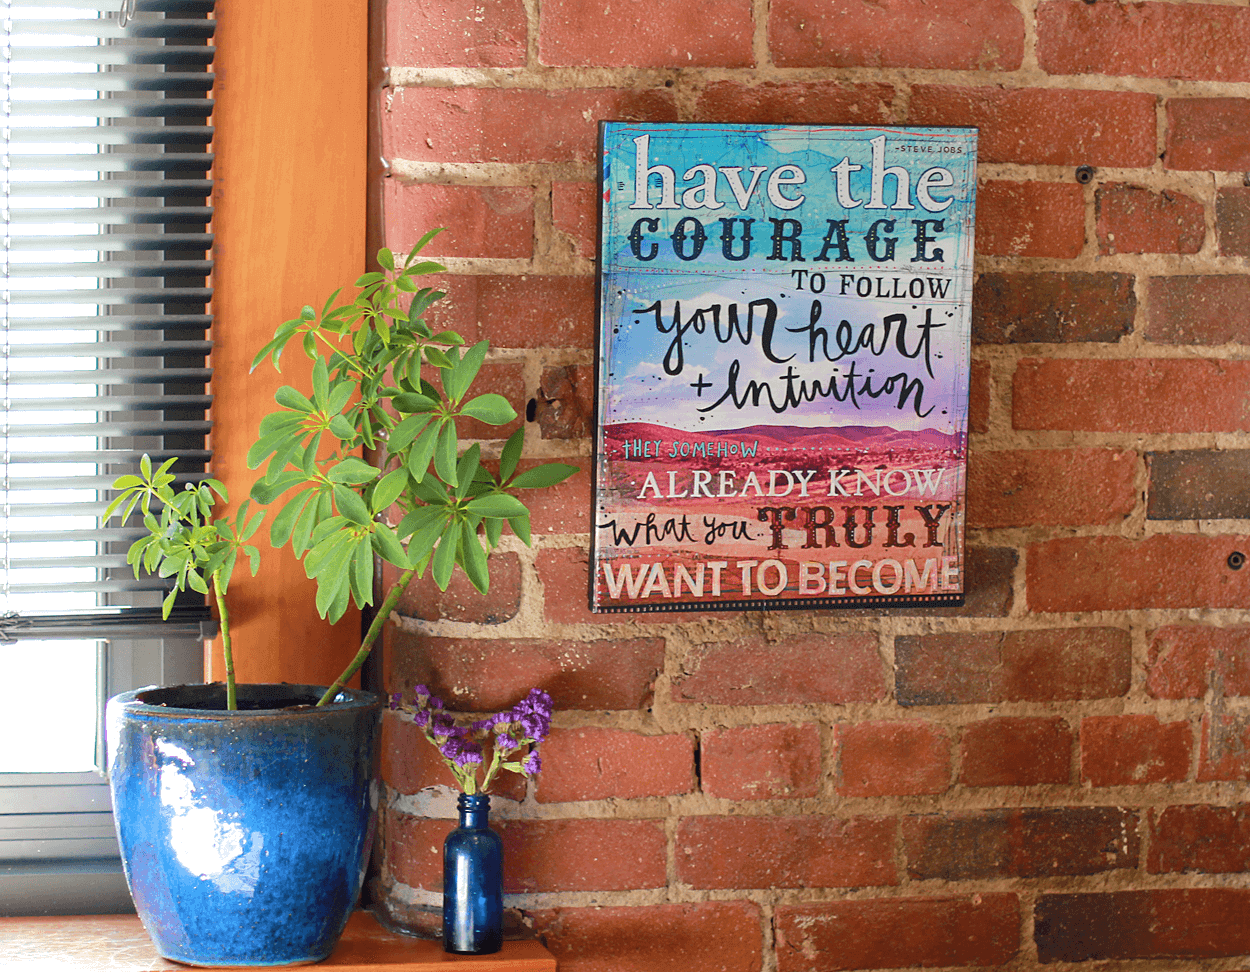 -STEVE JOBS
have the
COURAGE
TO FOLLOW
your heart
+ Intuition
tHEY SOMEHOW
ALREADY KNOW
what you TRULY
WANT TO BECOME